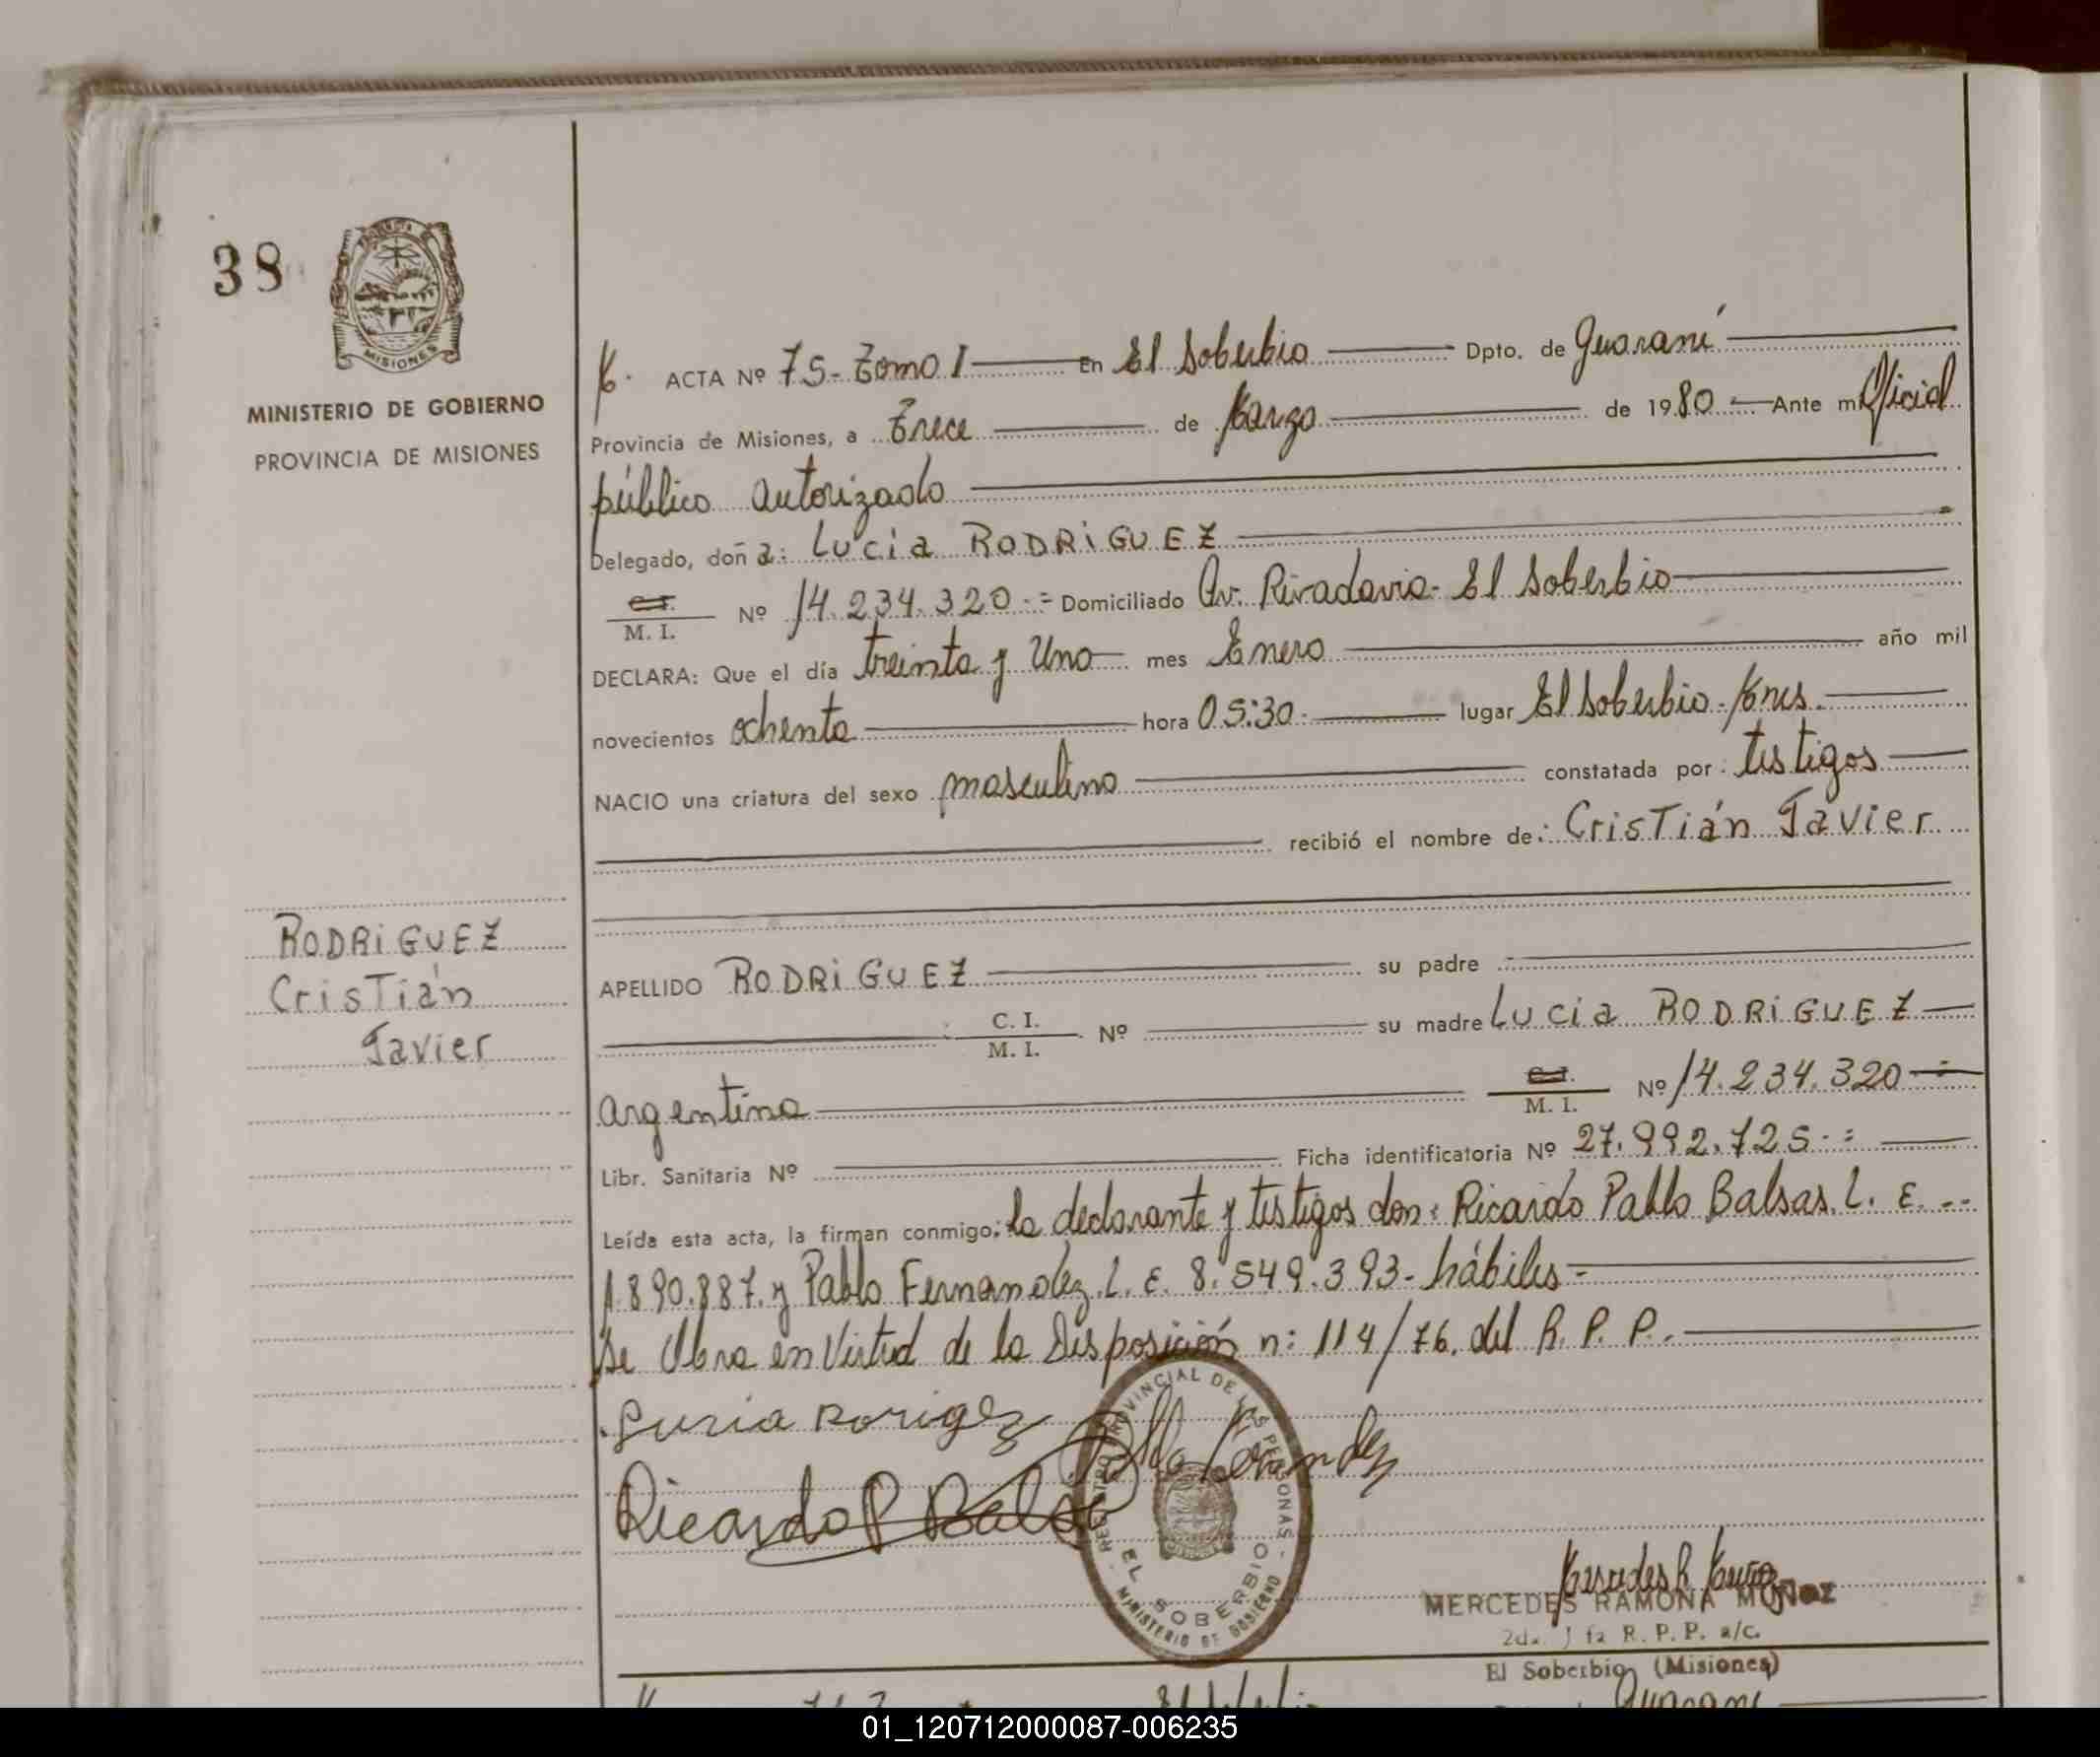 38
MISIONES
MINISTERIO DE GOBIERNO
PROVINCIA DE MISIONES
ACTA Nº 75- Tomo I En El Soberbio Dpto. de Guaraní
Provincia de Misiones, a Trece de Marzo de 1980 Ante mi Oficial
público autorizado
Delegado, doña: Lucia RODRIGUEZ
C.I. M. I. Nº 14.234.320 Domiciliado Av. Rivadavia- El Soberbio
DECLARA: Que el día treinta y Uno mes Enero año mil
novecientos ochenta hora 05:30 lugar El Soberbio. Mnes.
NACIO una criatura del sexo masculino constatada por: testigos
recibió el nombre de: Cristián Javier
RODRIGUEZ
Cristián
Javier
APELLIDO RODRIGUEZ su padre
C. I. M. I. Nº su madre Lucia RODRIGUEZ
argentina C.I. M. I. Nº 14.234.320
Libr. Sanitaria Nº Ficha identificatoria Nº 27.992.725
Leída esta acta, la firman conmigo: la declarante y testigos don: Ricardo Pablo Balsas. L. E.
1.890.887. y Pablo Fernandez. L. E. 8.549.393- hábiles-
Se Obra en Virtud de la Disposición n: 114/76. del R. P. P.
Ricardo P Balsa
Pablo Fernandez
REGISTRO PROVINCIAL DE LAS PERSONAS - EL SOBERBIO MINISTERIO DE GOBIERNO
MERCEDES RAMONA MUÑOZ
R. P. P. a/c.
El Soberbio (Misiones)
Guaraní
01_120712000087-006235